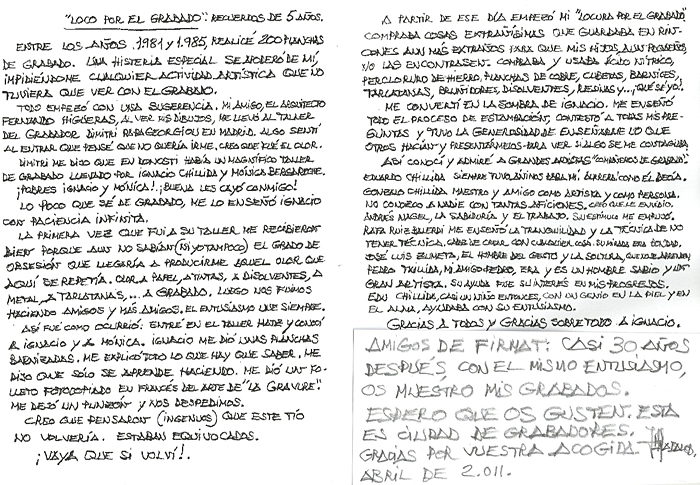 "LOCO POR EL GRABADO": RECUERDOS DE 5 AÑOS.
ENTRE LOS AÑOS 1981 Y 1985, REALICÉ 200 PLANCHAS
DE GRABADO. UNA HISTERIA ESPECIAL SE APODERÓ DE MÍ,
IMPIDIÉNDOME CUALQUIER ACTIVIDAD ARTÍSTICA QUE NO
TUVIERA QUE VER CON EL GRABADO.
TODO EMPEZÓ CON UNA SUGERENCIA. MI AMIGO, EL ARQUITECTO
FERNANDO HIGUERAS, AL VER MIS DIBUJOS, ME LLEVÓ AL TALLER
DEL GRABADOR DIMITRI PAPAGEORGIOU EN MADRID. ALGO SENTÍ
AL ENTRAR QUE PENSÉ QUE NO QUERÍA IRME. CREO QUE FUE EL OLOR.
DIMITRI ME DIJO QUE EN DONOSTI HABÍA UN MAGNÍFICO TALLER
DE GRABADO LLEVADO POR IGNACIO CHILLIDA Y MÓNICA BERGARECHE.
¡POBRES IGNACIO Y MÓNICA!. ¡BUENA LES CAYÓ CONMIGO!
LO POCO QUE SÉ DE GRABADO, ME LO ENSEÑÓ IGNACIO
CON PACIENCIA INFINITA.
LA PRIMERA VEZ QUE FUI A SU TALLER ME RECIBIERON
BIEN PORQUE AUN NO SABÍAN (NI YO TAMPOCO) EL GRADO DE
OBSESIÓN QUE LLEGARÍA A PRODUCIRME AQUEL OLOR QUE
AQUÍ SE REPETÍA. OLOR A PAPEL, A TINTAS, A DISOLVENTES, A
METAL, A TARLATANAS,... A GRABADO. LUEGO NOS FUIMOS
HACIENDO AMIGOS Y MÁS AMIGOS. EL ENTUSIASMO UNE SIEMPRE.
ASÍ FUE COMO OCURRIÓ. ENTRÉ EN EL TALLER HATZ Y CONOCÍ
A IGNACIO Y A MÓNICA. IGNACIO ME DIÓ UNAS PLANCHAS
BARNIZADAS. ME EXPLICÓ TODO LO QUE HAY QUE SABER. ME
DIJO QUE SÓLO SE APRENDE HACIENDO. ME DIÓ UN FO-
LLETO FOTOCOPIADO EN FRANCÉS DEL ARTE DE "LA GRAVURE".
ME DEJÓ UN PUNZÓN Y NOS DESPEDIMOS.
CREO QUE PENSARON (INGENUOS) QUE ESTE TÍO
NO VOLVERÍA. ESTABAN EQUIVOCADOS.
¡VAYA QUE SI VOLVÍ!.
A PARTIR DE ESE DÍA EMPEZÓ MI "LOCURA POR EL GRABADO".
COMPRABA COSAS EXTRAÑÍSIMAS QUE GUARDABA EN RIN-
CONES AUN MÁS EXTRAÑOS PARA QUE MIS HIJOS, AUN PEQUEÑOS,
NO LAS ENCONTRASEN. COMPRABA Y USABA ÁCIDO NÍTRICO,
PERCLORURO DE HIERRO, PLANCHAS DE COBRE, CUBETAS, BARNICES,
TARLATANAS, BRUÑIDORES, DISOLVENTES, RESINAS Y... ¡QUÉ SÉ YO!.
ME CONVERTÍ EN LA SOMBRA DE IGNACIO. ME ENSEÑÓ
TODO EL PROCESO DE ESTAMPACIÓN, CONTESTÓ A TODAS MIS PRE-
GUNTAS Y TUVO LA GENEROSIDAD DE ENSEÑARME LO QUE
OTROS HACÍAN Y PRESENTÁRMELOS PARA VER SI ALGO SE ME CONTAGIABA.
ASÍ CONOCÍ Y ADMIRÉ A GRANDES ARTISTAS "COMPAÑEROS DE GRABADO".
EDUARDO CHILLIDA SIEMPRE TUVO ÁNIMOS PARA MÍ. COMO EL DECÍA.
GONZALO CHILLIDA MAESTRO Y AMIGO COMO ARTISTA Y COMO PERSONA.
NO CONOZCO A NADIE CON TANTAS AFICIONES. CREO QUE LE ENVIDIO.
ANDRÉS NAGEL, LA SABIDURÍA Y EL TRABAJO. SU ESTÍMULO ME EMPUJÓ.
RAFA RUIZ BALERDI ME ENSEÑÓ LA TRANQUILIDAD Y LA TÉCNICA DE NO
TENER TÉCNICA. CAPAZ DE CREAR CON CUALQUIER COSA. SU MIRADA ERA BONDAD.
JOSÉ LUIS ZUMETA, EL HOMBRE DEL GESTO Y LA SOLTURA,
PEDRO TXILLIDA, MI AMIGO PEDRO, ERA Y ES UN HOMBRE SABIO Y UN
GRAN ARTISTA. SU AYUDA FUE SU INTERÉS EN MIS PROGRESOS.
EDU CHILLIDA, CASI UN NIÑO ENTONCES, CON UN GENIO EN LA PIEL Y EN
EL ALMA, AYUDABA CON SU ENTUSIASMO.
GRACIAS A TODOS Y GRACIAS SOBRETODO A IGNACIO.
AMIGOS DE FIRMAT: CASI 30 AÑOS
DESPUÉS, CON EL MISMO ENTUSIASMO,
OS MUESTRO MIS GRABADOS.
ESPERO QUE OS GUSTEN. ESTA
ES CIUDAD DE GRABADORES.
GRACIAS POR VUESTRA ACOGIDA.
ABRIL DE 2.011.